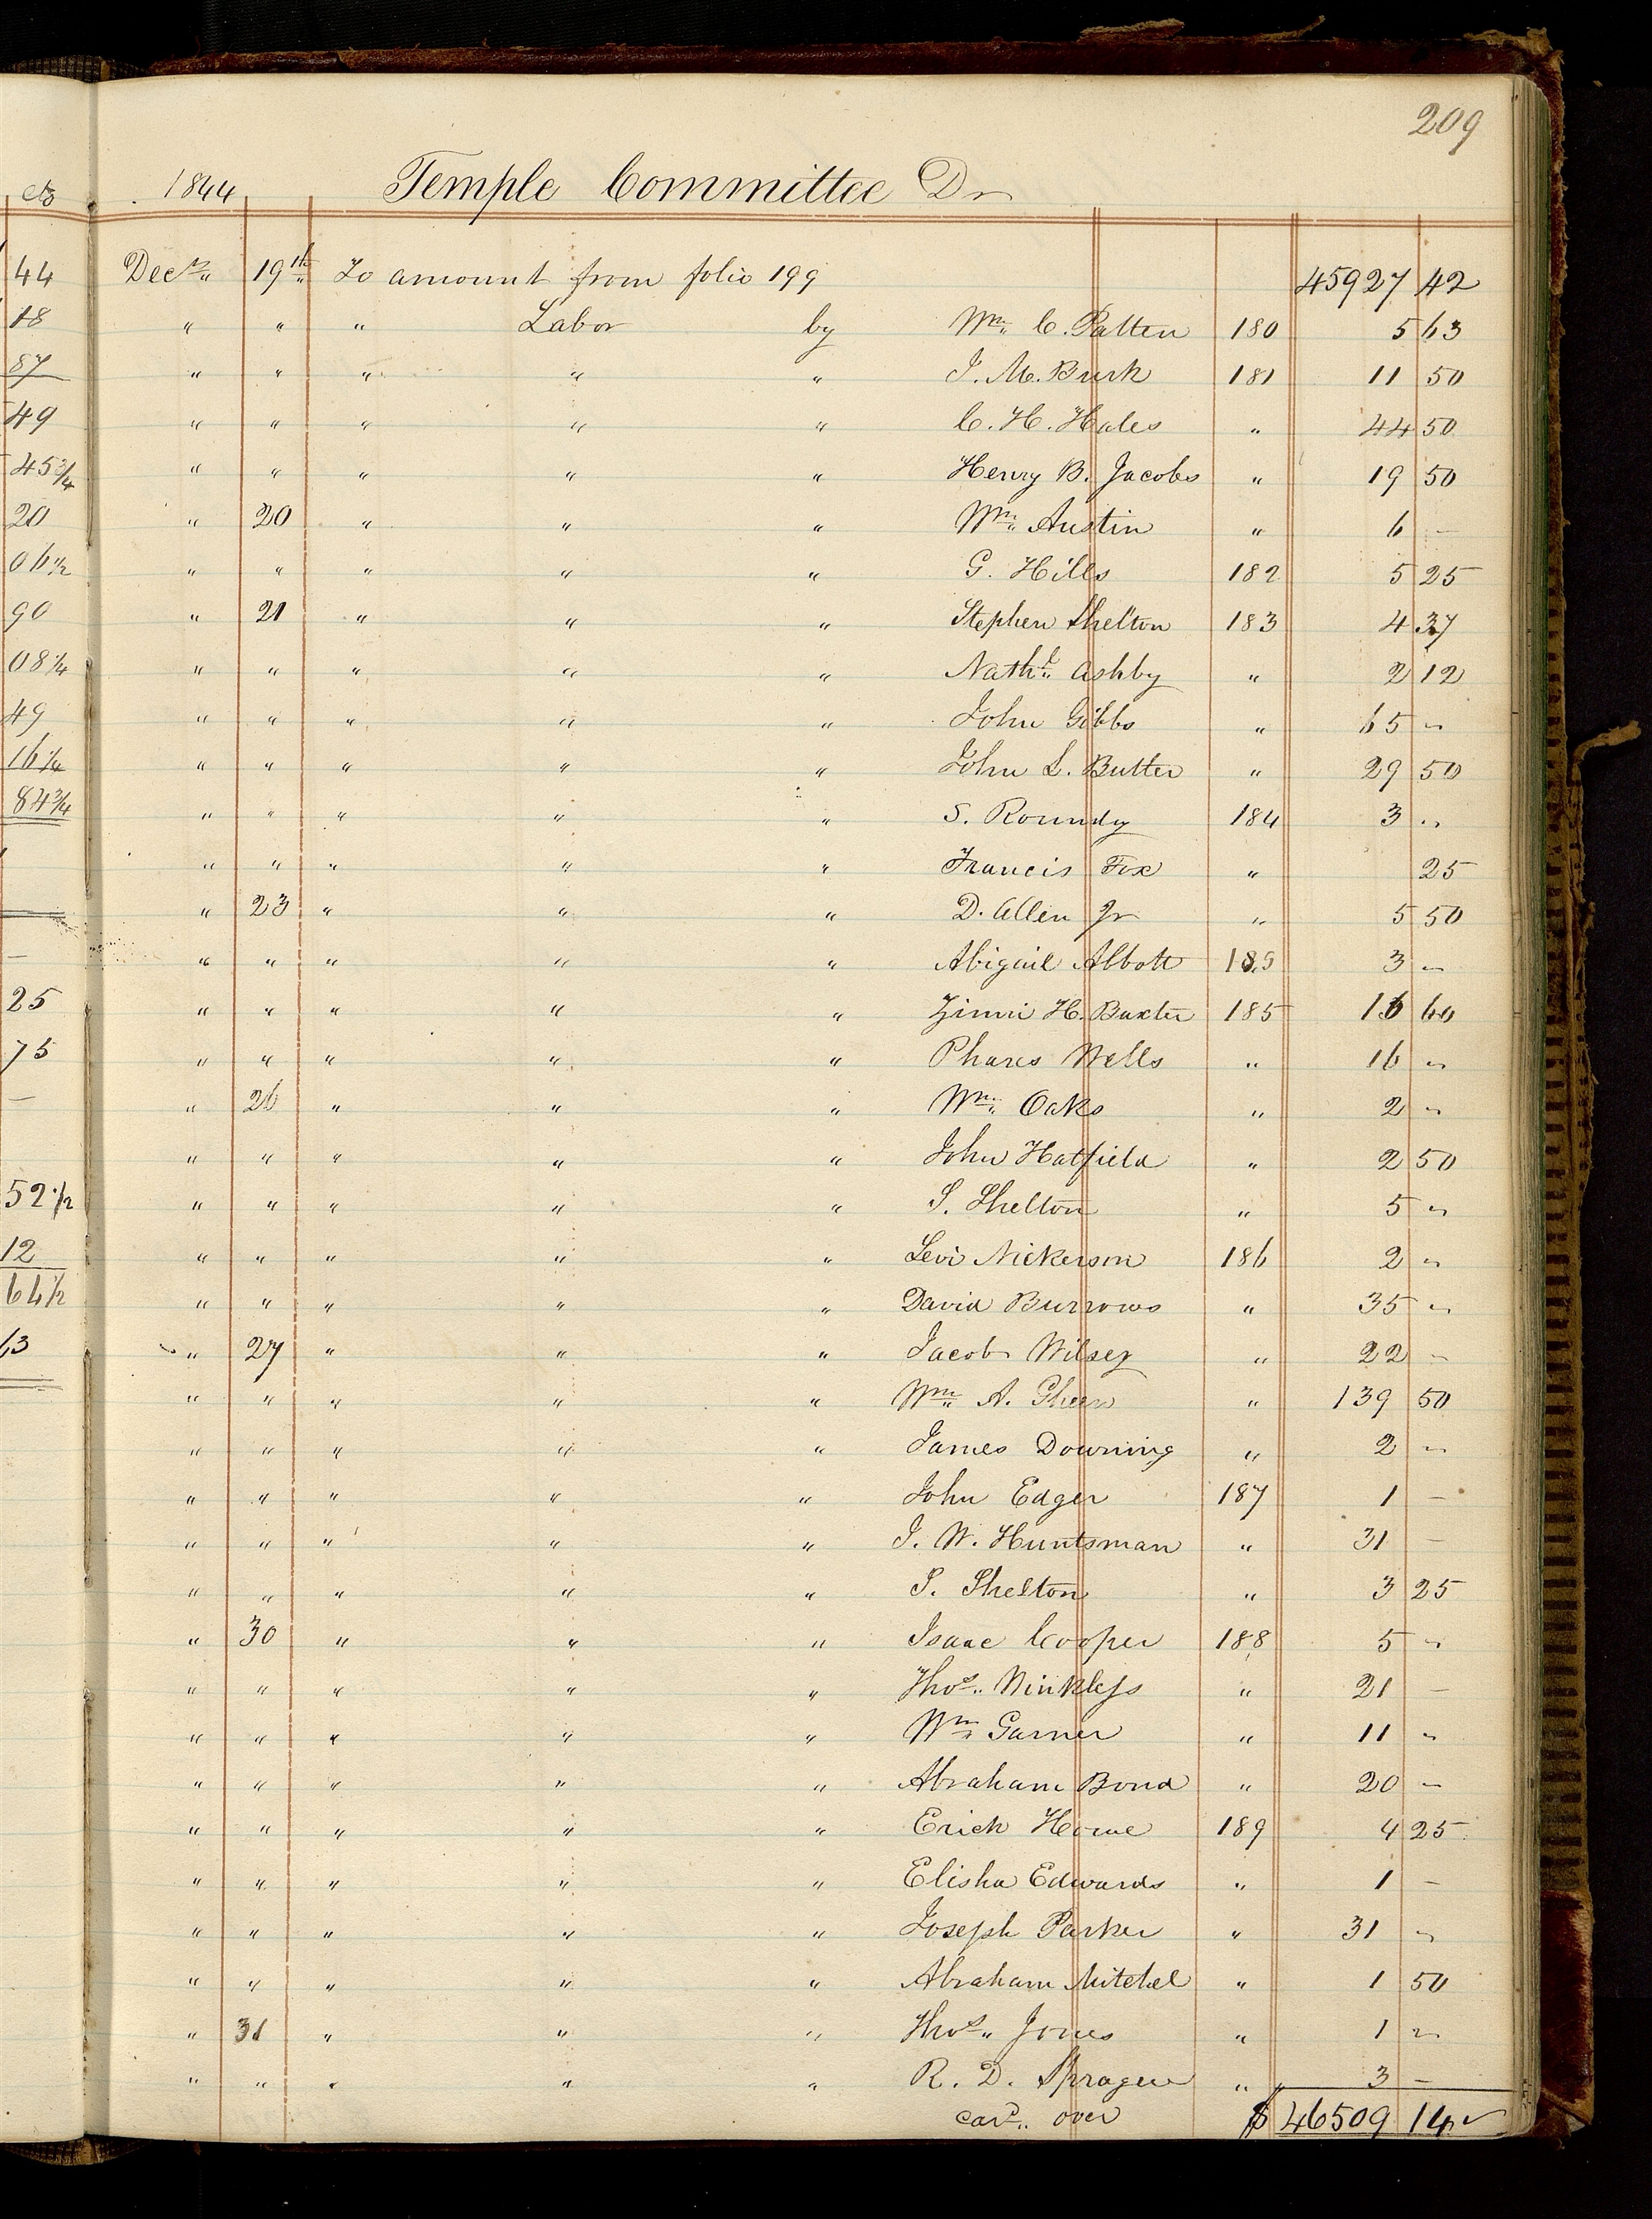 209
cts 1844 Temple Committee Dr
44 Decr. 19th To amount from folio 199 45927 42
18 " " " Labor by Wm. C. Patten 180 5 63
87 " " " " " J. M. Burk 181 11 50
49 " " " " " C. H. Hales " 44 50
45 3/4 " " " " " Henry B. Jacobs " 19 50
20 " 20 " " " Wm. Austin " 6 –
06 1/2 " " " " " G. Hills 182 5 25
90 " 21 " " " Stephen Shelton 183 4 37
08 1/4 " " " " " Nathl. Ashby " 2 12
49 " " " " " John Gibbs " 65 "
16 1/4 " " " " " John L. Butter " 29 50
84 3/4 " " " " " S. Roundy 184 3 "
" " " " " Francis Fox " 25
" 23 " " " D. Allen Jr " 5 50
– " " " " " Abigail Abbott 185 3 "
25 " " " " " Zimri H. Baxter 185 16 60
75 " " " " " Phares Wells " 16 "
– " 26 " " " Wm. Oaks " 2 "
" " " " " John Hatfield " 2 50
52 1/2 " " " " " S. Shelton " 5 "
12 " " " " " Levi Nickerson 186 2 "
64 1/2 " " " " " David Burrows " 35 "
63 " 27 " " " Jacob Wilsey " 22 –
" " " " " Wm. A. Gheen " 139 50
" " " " " James Downing " 2 "
" " " " " John Edger 187 1 –
" " " " " J. W. Huntsman " 31 –
" " " " " S. Shelton " 3 25
" 30 " " " Isaac Cooper 188 5 "
" " " " " Thos. Winkless " 21 –
" " " " " Wm. Garner " 11 "
" " " " " Abraham Bond " 20 –
" " " " " Erick Howe 189 4 25
" " " " " Elisha Edwards " 1 –
" " " " " Joseph Parker " 31 "
" " " " " Abraham Mitchel " 1 50
" 31 " " " Thos. Jones " 1 "
" " " " " R. D. Sprague " 3 –
card. over $ 46509 14